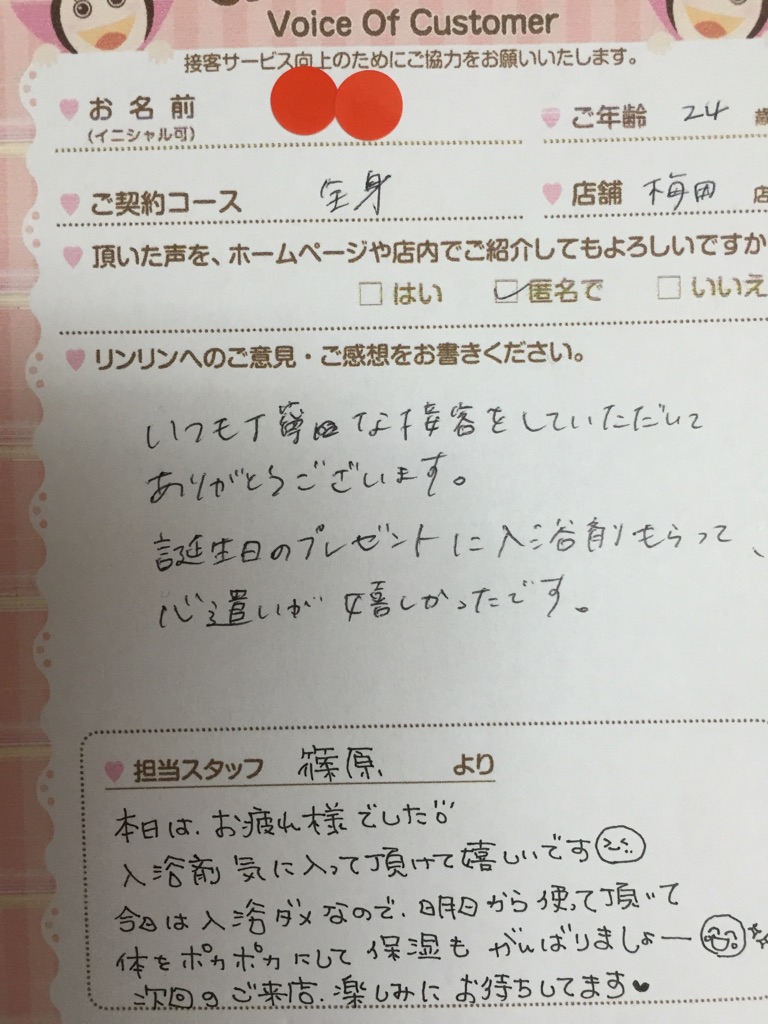 Voice Of Customer
接客サービス向上のためにご協力をお願いいたします。
お名前
(イニシャル可)
ご年齢 24 歳
ご契約コース 全身
店舗 梅田 店
頂いた声を、ホームページや店内でご紹介してもよろしいですか
はい 匿名で いいえ
リンリンへのご意見・ご感想をお書きください。
いつも丁寧な接客をしていただいて
ありがとうございます。
誕生日のプレゼントに入浴剤もらって、
心遣いが嬉しかったです。
担当スタッフ 篠原 より
本日は、お疲れ様でした
入浴剤 気に入って頂けて嬉しいです
今日は入浴ダメなので、明日から使って頂いて
体をポカポカにして 保湿も がんばりましょー
次回のご来店、楽しみに お待ちしてます♥